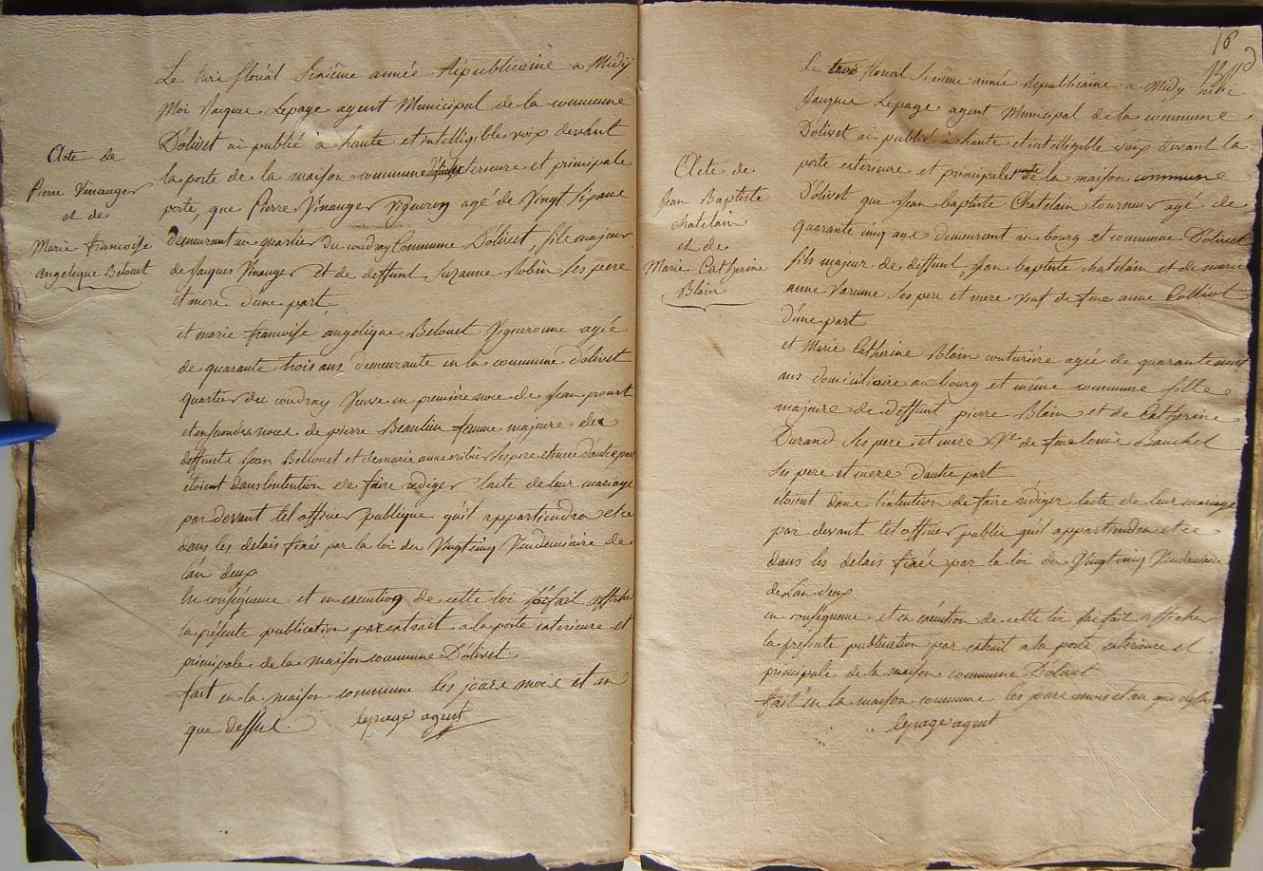 Acte de
Pierre Vinauger
et de
Marie francoise
angelique Belouet
Le floréal Sixième année Républicaine a Midy
Moi Jacque Lepage agent Municipal de la commune
D'olivet ai publié à haute et intelligible voix devant
la porte de la maison commune exterieure et principale
porte que Pierre Vinauger Vigneron agé de Vingt
demeurant au quartier du coudray Commune D'olivet, fils majeur
de Jacques Vinauger et de deffunt Suzanne Robin Ses pere
et mere d'une part
et marie francoise angelique Belouet Vigneronne agée
de quarante trois ans demeurante en la commune d'olivet
quartier du coudray Veuve en première noce de Jean
et en secondes noces de pierre Beaulieu femme majeure de
deffunts Jean Bellouet et de marie anne Ses pere et mere d'autre part
étoient dans l'intention de faire rediger l'acte de leur mariage
par devant tel officier publique qu'il appartiendra et ce
dans les delais fixés par la loi du Vingt cinq Vendemiaire de
l'an deux
En conséquence et en execution de cette loi fait afficher
la présente publication par extrait a la porte exterieure et
principale de la maison commune D'olivet
fait en la maison commune les jours mois et an
que dessus lepage agent
16
Acte de
Jean Baptiste
chatelain
et de
Marie Catherine
Blain
Le trois floreal Sixième année Republicaine a Midy
Jacques Lepage agent Municipal de la commune
D'olivet ai publié à haute et intelligible voix devant la
porte exterieure et principale de la maison commune
D'olivet que Jean baptiste Chatelain tourneur agé de
quarante cinq ans demeurant au bourg et commune D'olivet
fils majeur de deffunt Jean baptiste chatelain et de marie
anne Varenne Ses pere et mere veuf de anne
d'une part
et Marie Catherine Blain couturière agée de quarante
ans domiciliaire au bourg et même commune fille
majeure de deffunt pierre Blain et de Catherine
Durand Ses pere et mere Ve de louis
Ses pere et mere d'autre part
étoient dans l'intention de faire rédiger l'acte de leur mariage
par devant tel officier public qu'il appartiendra et ce
dans les delais fixée par la loi du Vingt cinq Vendemiaire
de L'an deux
en conséquence et en execution de cette loi j'ai fait afficher
la présente publication par extrait a la porte exterieure et
principale de la maison commune D'olivet
fait en la maison commune les jours mois et an que dessus
lepage agent